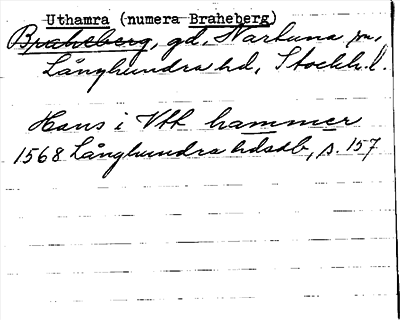 Uthamra (numera Braheberg)
Braheberg, gd, Nartuna sn,
Långhundra hd, Stockh. l.
Hans i Vtt hammer
1568 Långhundra hdsdb, s. 157